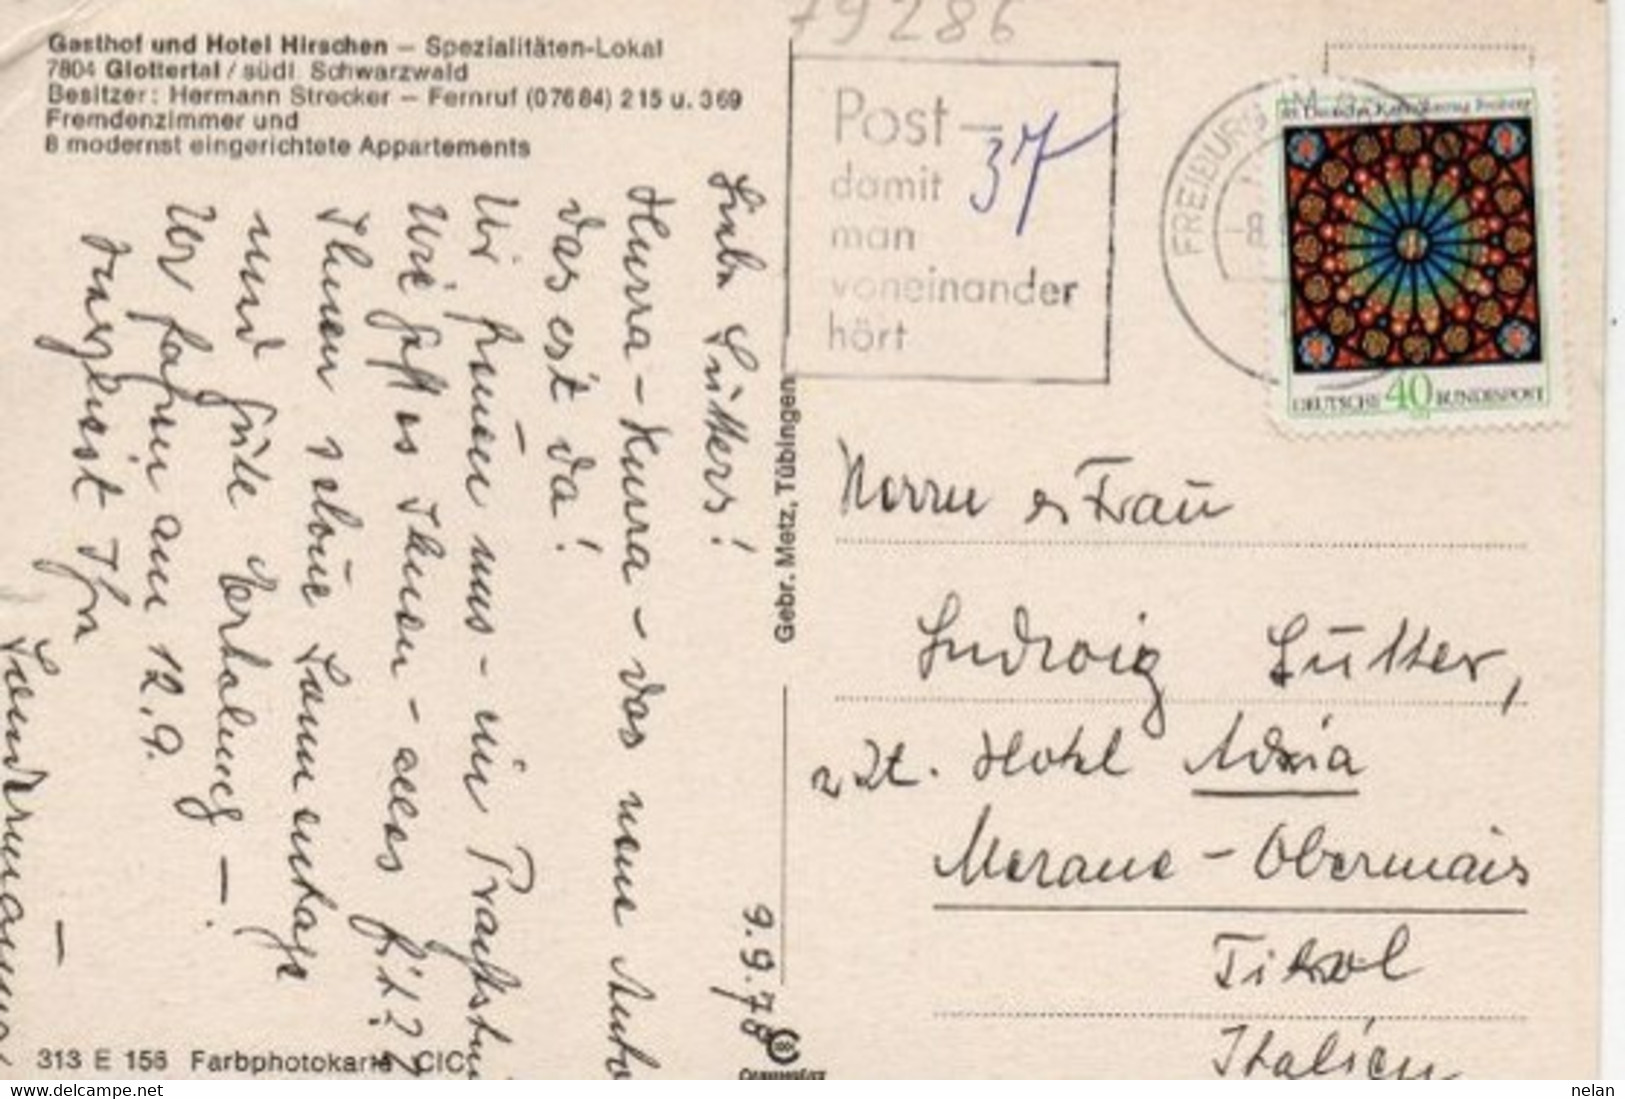 79286
Gasthof und Hotel Hirschen – Spezialitäten-Lokal
7804 Glottertal / südl. Schwarzwald
Besitzer: Hermann Strecker – Fernruf (07684) 215 u. 369
Fremdenzimmer und
8 modernst eingerichtete Appartements
9.9.78
Liebe Lütters!
Hurra – Hurra – das neue Auto
das ist da!
Wir freuen uns – ein Prachtstü
Wie geht es Ihnen – alles fit??
Ihnen schöne Sonnentage
und gute Erholung –.
Wir fahren am 12.9.
Ihre
Post –
damit
man
voneinander
hört
37
FREIBURG IM
Deutscher Katholikentag Freiburg
DEUTSCHE 40 BUNDESPOST
Herrn & Frau
Ludwig Lütter,
z Zt. Hotel Adria
Merano – Obermais
Tirol
Italien
Gebr. Metz, Tübingen
313 E 156 Farbphotokarte CIC
nelan